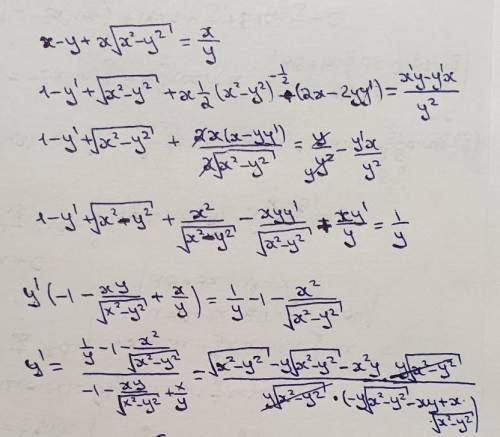 x-y+x√(x²-y²) = x/y
1-y'+√(x²-y²) + x 1/2 (x²-y²)^(-1/2) · (2x-2yy') = (x'y-y'x)/y²
1-y'+√(x²-y²) + 2x(x-yy')/(2√(x²-y²)) = y/y² - y'x/y²
1-y'+√(x²-y²) + x²/√(x²-y²) - xyy'/√(x²-y²) + xy'/y = 1/y
y'(-1 - xy/√(x²-y²) + x/y) = 1/y - 1 - x²/√(x²-y²)
y' = (1/y - 1 - x²/√(x²-y²))/(-1 - xy/√(x²-y²) + x/y) = (√(x²-y²) - y√(x²-y²) - x²y · y√(x²-y²))/(y√(x²-y²) · (-y√(x²-y²) - xy + x · √(x²-y²)))